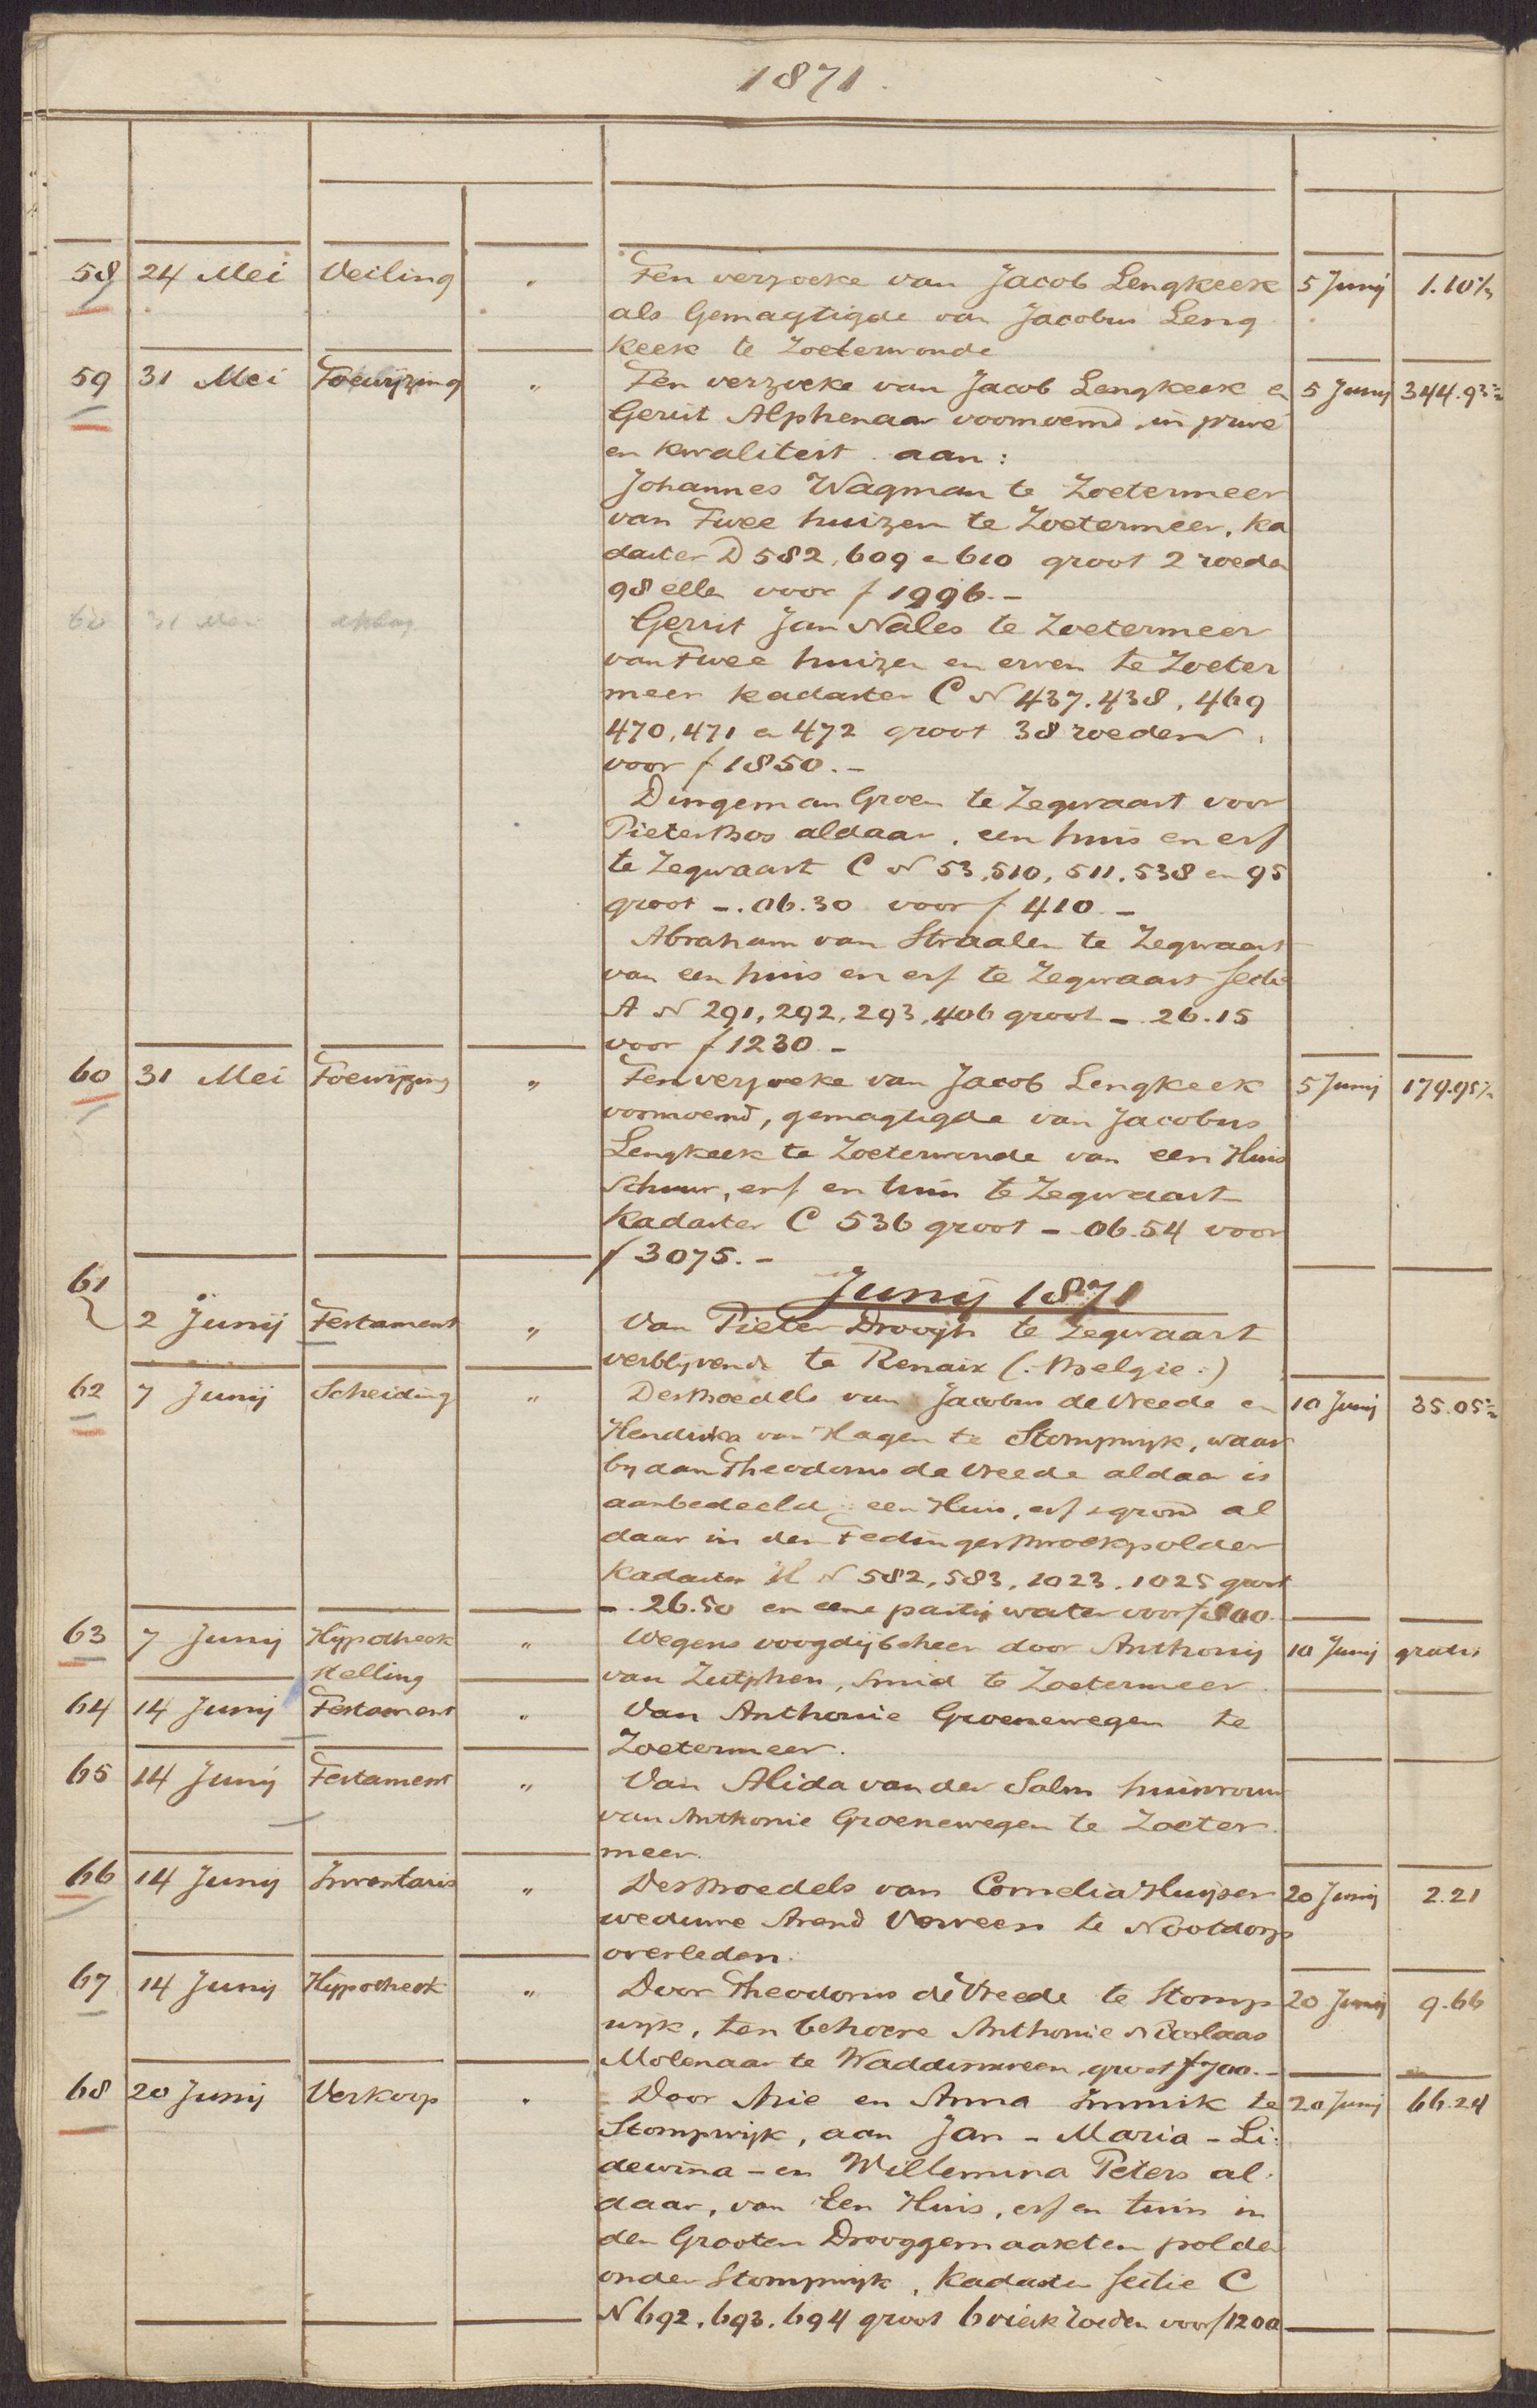 1871.
58 24 Mei Veiling " Ten verzoeke van Jacob Lengkeek 5 Junij 1.10½
als Gemagtigde van Jacobus Leng
keek te Zoeterwoude
59 31 Mei Toewijzing " Ten verzoeke van Jacob Lengkeek en 5 Junij 344.93½
Gerrit Alphenaar voornoemd, in privé
en kwaliteit aan:
Johannes Wagman te Zoetermeer
van Twee huizen te Zoetermeer, ka
daster D 582, 609 en 610 groot 2 roeden
98 ellen voor f 1996.-
60 31 Mei
Gerrit Jan Nales te Zoetermeer
van Twee huizen en erven te Zoeter
meer kadaster C N 437. 438, 469
470, 471 en 472 groot 38 roeden
voor f 1850.-
Dingeman Groen te Zegwaart voor
Pieter Bos aldaar, een huis en erf
te Zegwaart C N 53, 510, 511, 538 en 95
groot -. 06.30 voor f 410.-
Abraham van Straalen te Zegwaart
van een huis en erf te Zegwaart Sectie
A N 291, 292, 293, 406 groot -. 26.15
voor f 1230.-
60 31 Mei Toewijzing " Ten verzoeke van Jacob Lengkeek 5 Junij 179.95½
voornoemd, gemagtigde van Jacobus
Lengkeek te Zoeterwoude van een Huis
Schuur, erf en tuin te Zegwaart
Kadaster C 536 groot -. 06.54 voor
f 3075.-
Junij 1871
61 2 Junij Testament " Van Pieter Droogh te Zegwaart
verblijvende te Renaix (:Belgie:)
62 7 Junij Scheiding " Des Boedels van Jacobus de Vreede en 10 Junij 35.05½
Hendrika van Hagen te Stompwijk, waar
bij aan Theodorus de Vreede aldaar is
aanbedeeld een Huis, erf en grond al
daar in den Tedingerbroekpolder
Kadaster H N 582, 583, 1023, 1025 groot
-. 26.50 en eene partij water voor f 800.
63 7 Junij Hypotheek " Wegens voogdijbeheer door Anthonij 10 Junij gratis
stelling van Zutphen, Smid te Zoetermeer.
64 14 Junij Testament " Van Anthonie Groenewegen te
Zoetermeer.
65 14 Junij Testament " Van Alida van der Salm huisvrouw
van Anthonie Groenewegen te Zoeter
meer.
66 14 Junij Inventaris " Des Boedels van Cornelia Huijser 20 Junij 2.21
weduwe Arend Verveen te Nootdorp
overleden.
67 14 Junij Hypotheek " Door Theodorus de Vreede te Stomp 20 Junij 9.66
wijk, ten behoeve Anthonie Nicolaas
Molenaar te Waddinxveen, groot f 700.-
68 20 Junij Verkoop " Door Arie en Anna Immik te 20 Junij 66.24
Stompwijk, aan Jan - Maria - Li:
dewina - en Willemina Peters al:
daar, van Een Huis, erf en tuin in
den Grooten Drooggemaakten polder
onder Stompwijk, Kadaster Sectie C
N 692, 693, 694 groot 6 vierk roeden voor f 1200